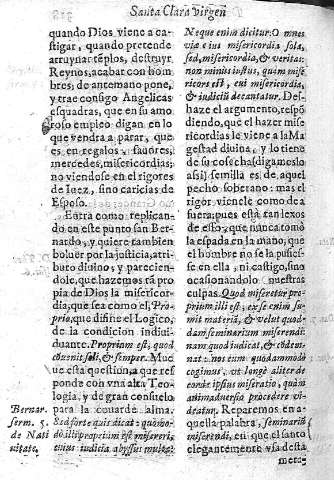 Santa Clara virgen
quando Dios viene a ca-
stigar, quando pretende
arruynar tẽplos, destruyr
Reynos, acabar con hom-
bres; de antemano pone,
y trae consigo Angelicas
esquadras, que en su amo
roso empleo digan en lo
que vendra a parar, que
es, en regalos, fauores,
mercedes, misericordias;
no viendose en el rigores
de Iuez, sino caricias de
Esposo.
Entra como replican-
do en este punto san Ber-
nardo, y quiere tambien
boluer por la justicia, atri-
buto diuino, y parecien-
dole, que hazemos tã pro
pia de Dios la misericor-
dia, que sea como el, Pro-
prio, que difine el Logico,
de la condicion indiui-
duante. Proprium est, quod
cõuenit soli, & semper. Mue
ue esta question, a que res
ponde con vna alta Teo-
logia, y de gran consuelo
para la couarde alma.
Sed forte quis dicat: quomo-
dò illi proprium est misereri,
cuius iudicia abyssus multa?
Bernar.
serm. 5.
de Nati
uitate.
Neque enim dicitur: Omnes
viæ eius misericordia sola,
sed, misericordia, & veritas:
non minùs iustus, quàm mise
ricors est, cui misericordia,
& iudiciũ decantatur. Des-
haze el argumento, respõ
diendo, que el hazer mise
ricordias le viene a la Ma
gestad diuina, y lo tiene
de su cosecha (digamoslo
assi) semilla es de aquel
pecho soberano: mas el
rigor vienele como de a
fuera; pues està tan lexos
de esso, que nunca tomò
la espada en la mano, que
el hombre no se la pusies-
se en ella, ni castigo, sino
ocasionandolo nuestras
culpas. Quòd miseretur pro-
prium illi est, ex se enim su-
mit materiã, & velut quod-
dam seminarium miserendi:
nam quod iudicat, & condem-
nat: nos eum quodammodò
cogimus, vt longè aliter de
corde ipsius miseratio, quàm
animaduersio procedere vi-
deatur. Reparemos en a-
quella palabra, seminariũ
miserendi, en que el santo
elegantemente via desta
meta-